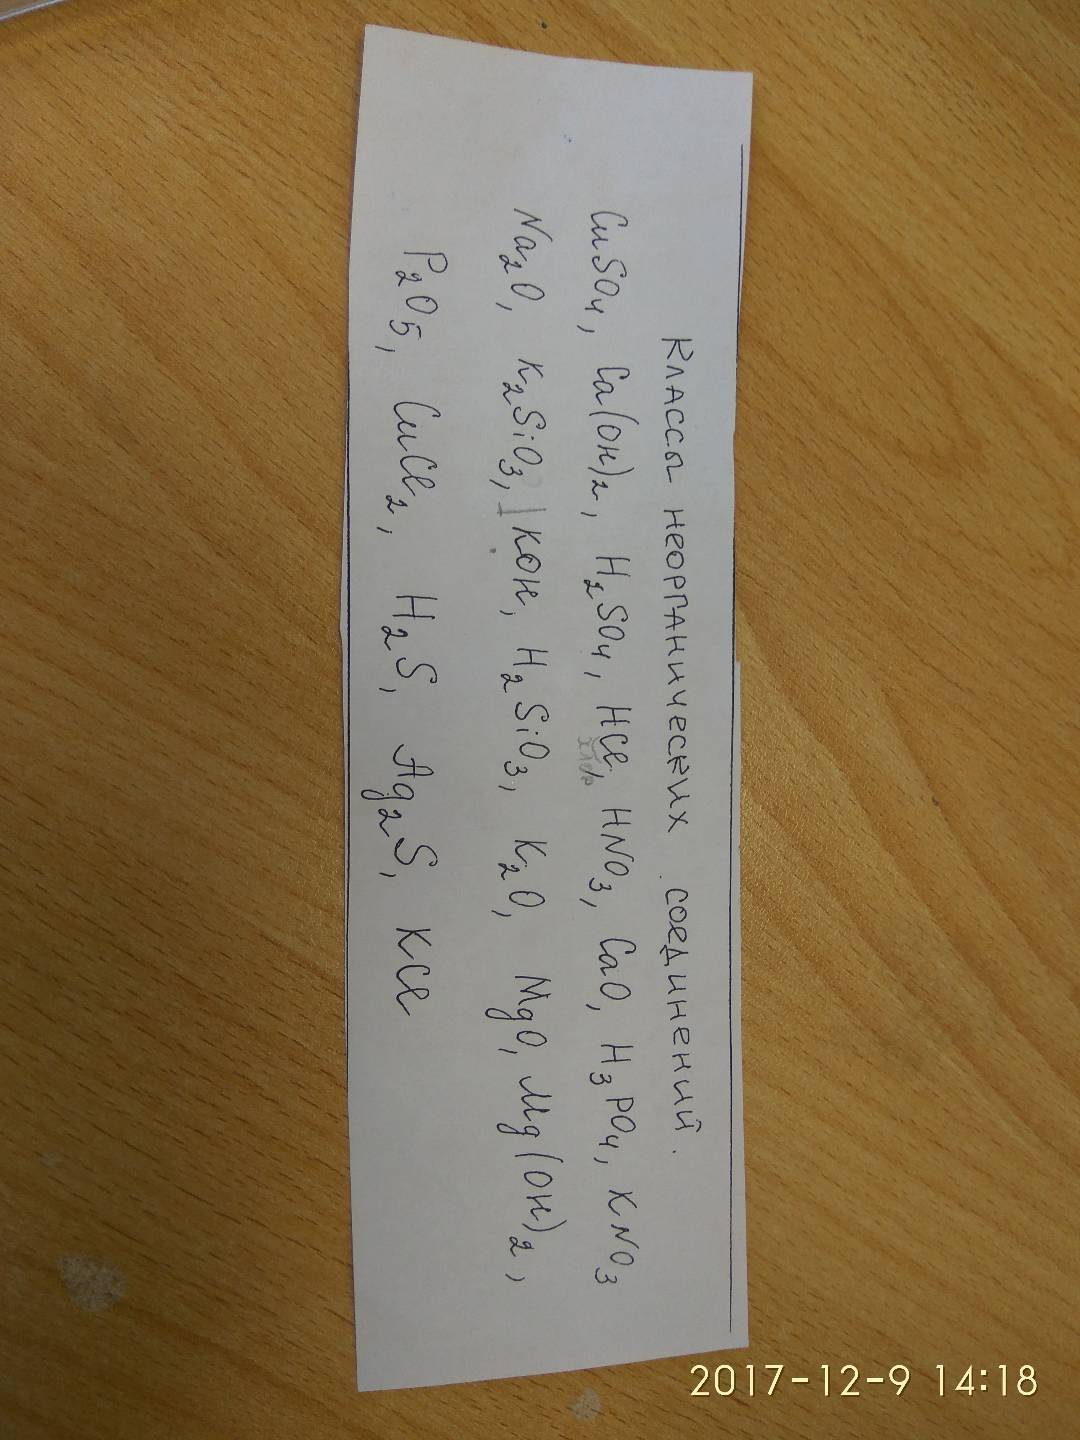 Классы неорганических соединений.
CuSO4, Ca(OH)2, H2SO4, HCl, HNO3, CaO, H3PO4, KNO3
хлор
Na2O, K2SiO3, | KOH, H2SiO3, K2O, MgO, Mg(OH)2,
P2O5, CuCl2, H2S, Ag2S, KCl
2017-12-9 14:18